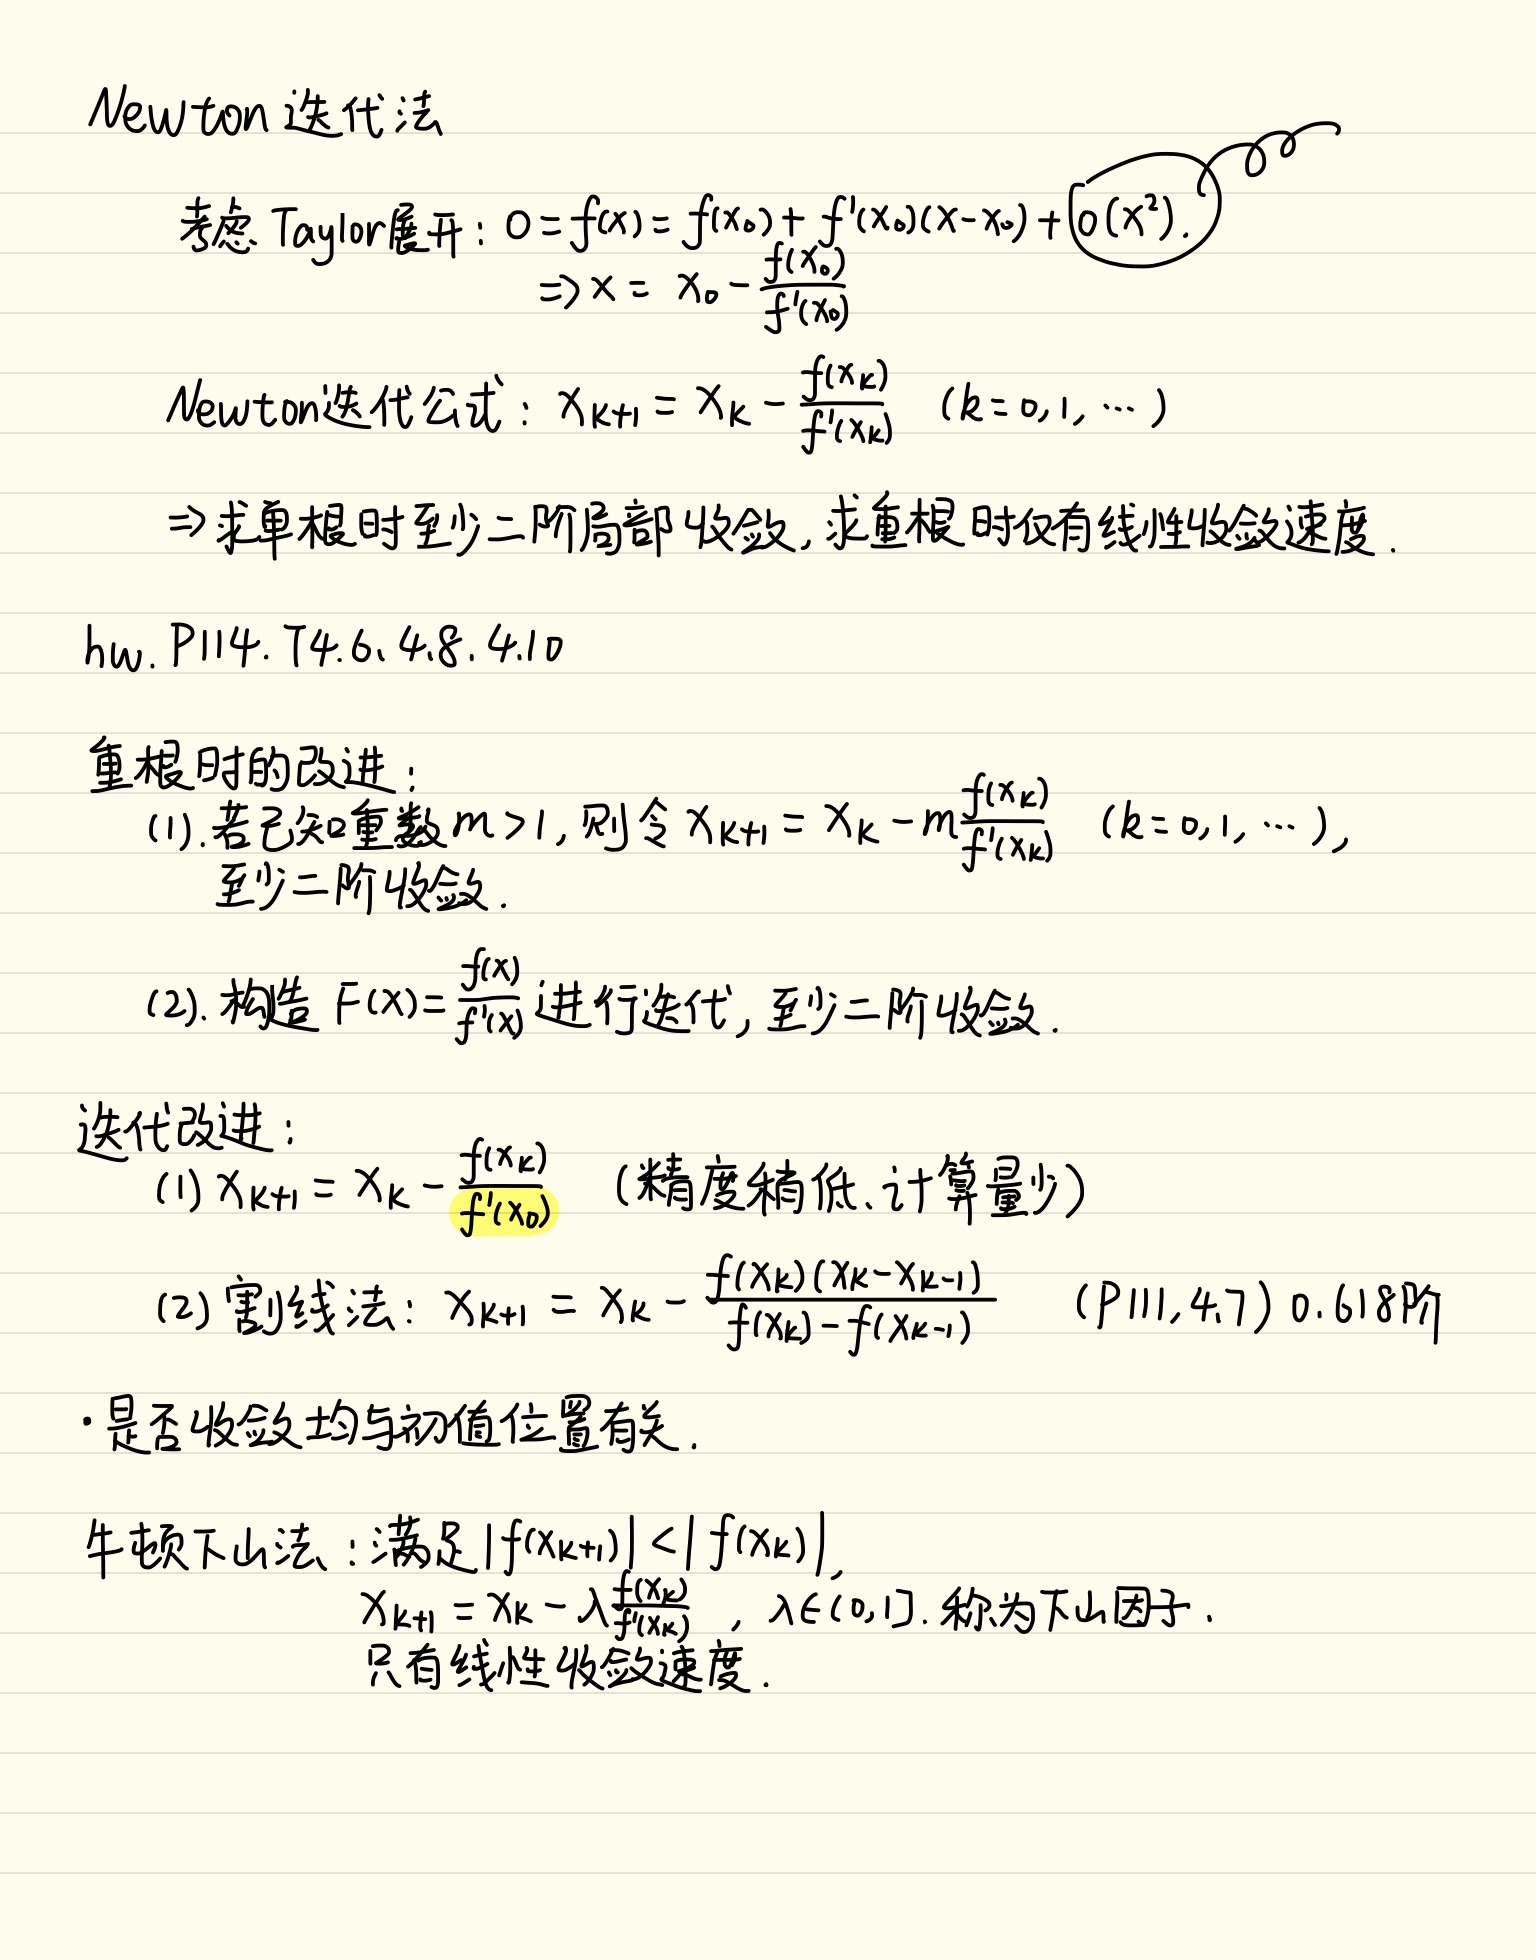 Newton 迭代法
考虑 Taylor展开: 0 = f(x) = f(x₀) + f'(x₀)(x-x₀) + o(x²).
⇒ x = x₀ - f(x₀)/f'(x₀)
Newton迭代公式: x_{k+1} = x_k - f(x_k)/f'(x_k) (k=0,1,…)
⇒求单根时至少二阶局部收敛,求重根时仅有线性收敛速度.
hw. P114. T4.6、4.8. 4.10
重根时的改进:
(1).若已知重数m>1,则令 x_{k+1} = x_k - m f(x_k)/f'(x_k) (k=0,1,…),
至少二阶收敛.
(2).构造 F(x)= f(x)/f'(x) 进行迭代,至少二阶收敛.
迭代改进:
(1) x_{k+1} = x_k - f(x_k)/f'(x₀) (精度稍低、计算量少)
(2) 割线法: x_{k+1} = x_k - f(x_k)(x_k-x_{k-1})/f(x_k)-f(x_{k-1}) (P111,4.7) 0.618阶
·是否收敛均与初值位置有关.
牛顿下山法:满足|f(x_{k+1})|<|f(x_k)|,
x_{k+1} = x_k - λ f(x_k)/f'(x_k) , λ∈(0,1]. 称为下山因子.
只有线性收敛速度.